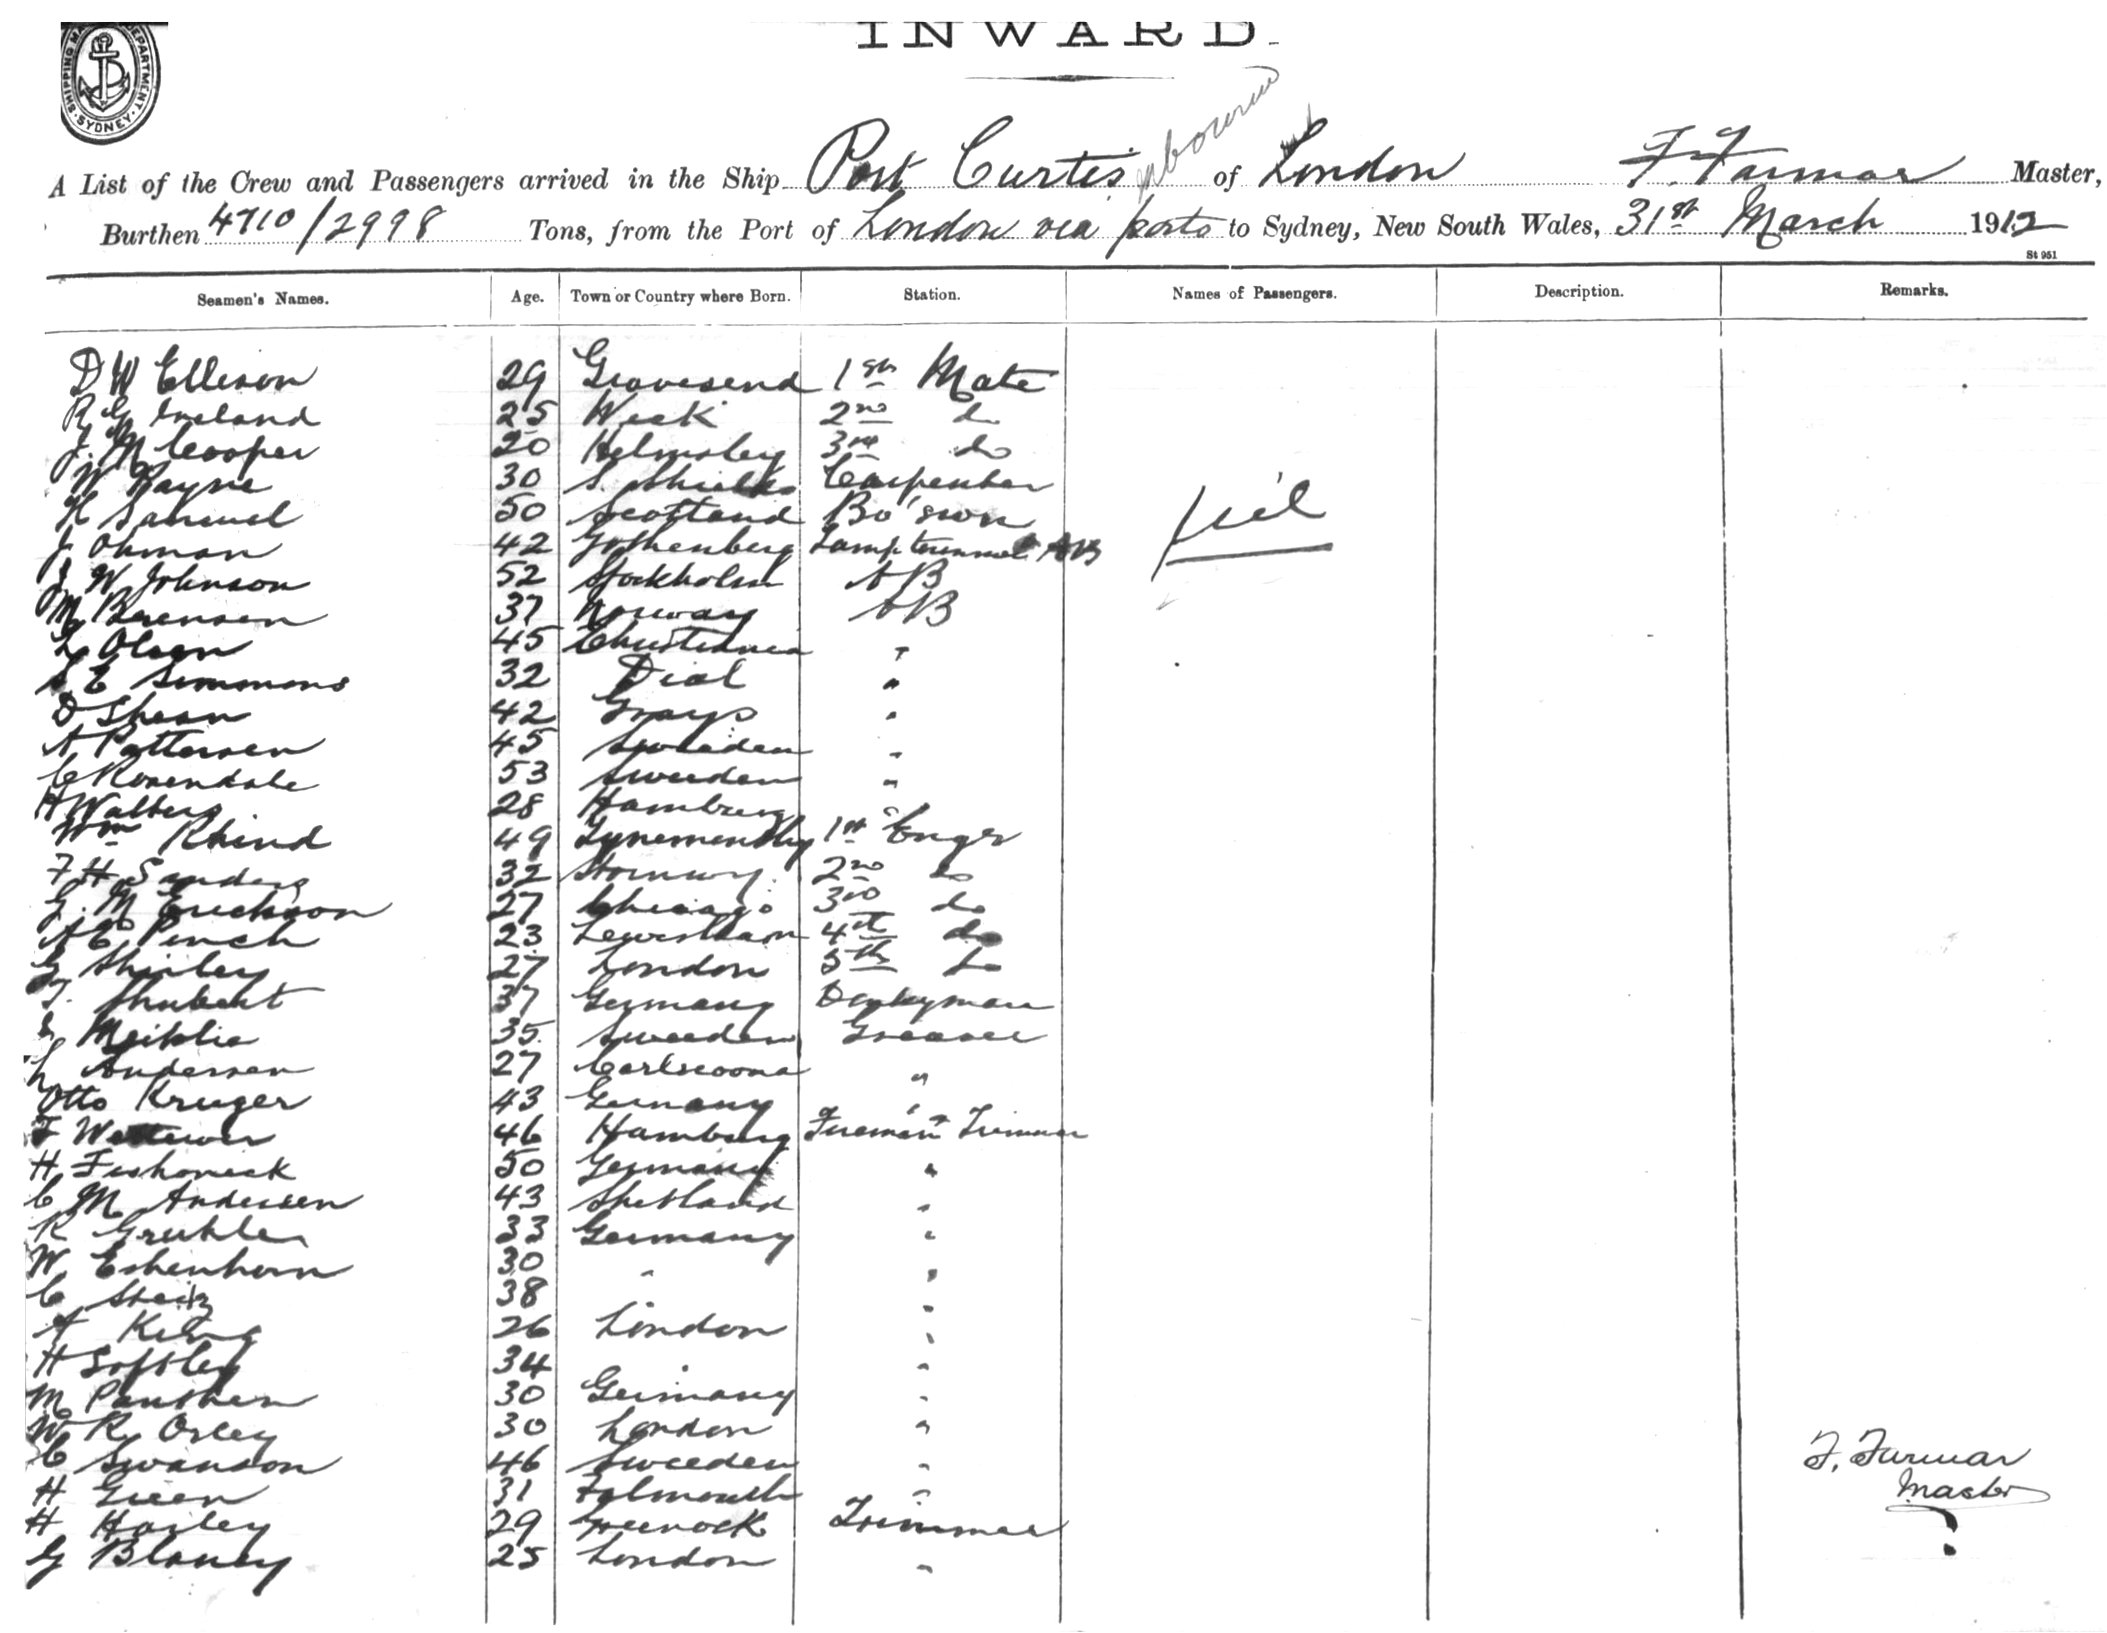 INWARD.
SHIPPING MA DEPARTMENT. SYDNEY.
A List of the Crew and Passengers arrived in the Ship Port Curtis of London F. Farmar Master,
Burthen 4710/2998 Tons, from the Port of London via ports to Sydney, New South Wales, 31st March 1912
St 951
Seamen's Names. Age. Town or Country where Born. Station. Names of Passengers. Description. Remarks.
D W Ellison 29 Gravesend 1st Mate
R G Ireland 25 Wick 2nd do
J. M Cooper 20 Helmsley 3rd do
W Rayne 30 S. Shields Carpenter
H Samuel 50 Scotland Bo'swn nil
J Ohman 42 Gothenberg Lamptrimmer AB
J W Johnson 52 Stockholm AB
M Berensen 37 Norway AB
L Olsen 45 Christiania "
S E Simmons 32 Dial "
D Shean 42 Grays "
A Pattersen 45 Sweeden "
C Rosendale 53 Sweeden "
H Walters 28 Hamburg "
Wm Rhind 49 1st Engr
F H Sanders 32 2nd do
G. M Erickson 27 Chicago 3rd do
A E Pinch 23 Lewisham 4th do
G Shirley 27 London 5th do
T. Shubert 37 Germany Donkeyman
Meiklie 35 Sweeden Greaser
L Andersen 27 Carlscoona "
Otto Kruger 43 Germany "
F 46 Hamburg Fireman Trimmer
H Fishoneck 50 Germany "
C M Andersen 43 Shetland "
R Gruhler 33 Germany "
W Eshenhorn 30 " "
C Steitz 38 "
A King 26 London "
H Softley 34 " "
M Panthen 30 Germany "
W R Orley 30 London "
C Swanson 46 Sweeden "
F. Farmar
Master
H Green 31 Falmouth "
H Harley 29 Greenock Trimmer
G Blaney 25 London "